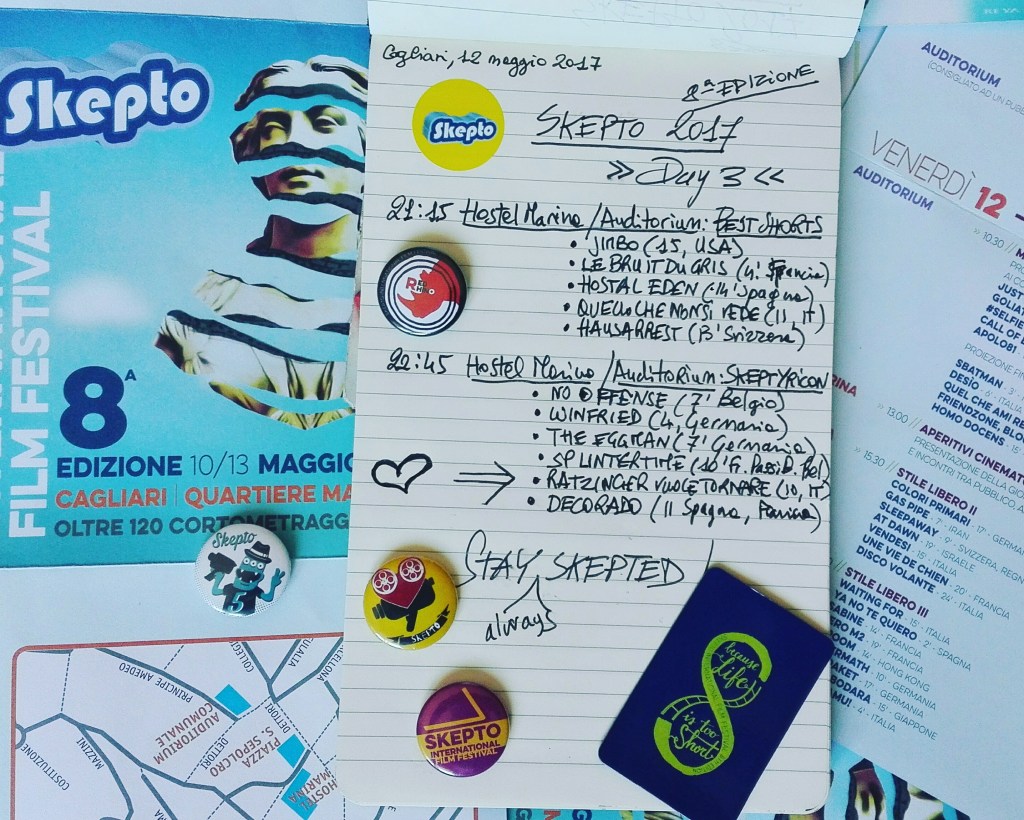 Skepto
FILM FESTIVAL
8ᴬ
EDIZIONE 10/13 MAGGIO
CAGLIARI | QUARTIERE MA
OLTRE 120 CORTOMETRAGG
Skepto
COSTITUZIONE
MAZZINI
PRINCIPE AMEDEO
AUDITORIUM
COMUNALE
PIAZZA
S. SEPOLCRO
DETTORI
DETTORI
HOSTEL
MARINA
COLLEGIO
EULALIA
Cagliari, 12 maggio 2017
8ª EDIZIONE
Skepto
SKEPTO 2017
>> Day 3 <<
21:15 Hostel Marina/Auditorium: BEST SHORTS
• JIMBO (15, USA)
• LE BRUIT DU GRIS (4' Francia)
• HOSTAL EDEN (14' Spagna)
• QUELLO CHE NON SI VEDE (11, IT)
• HAUSARREST (13' Svizzera)
22:45 Hostel Marina/Auditorium: SKEPTYRICON
• NO OFFENSE (7' Belgio)
• WINFRIED (4, Germania)
• THE EGGMAN (7' Germania)
• SPLINTERTIME (10' F. Passi B. Bel)
• RATZINGER VUOLE TORNARE (10, IT)
• DECORADO (11 Spagna, Francia)
STAY SKEPTED!
always
RED RHINO
SKEPTO
SKEPTO
INTERNATIONAL
FILM FESTIVAL
because
Life
is too
Short
AUDITORIUM
(CONSIGLIATO AD UN PUBB
VENERDÌ 12
AUDITORIUM
» 10.30 //
JUST
GOLIAT
#SELFIE
CALL OF
APOLO81
PROIEZIONE
SBATMAN · 3'
DESÍO · 6' · ITALIA
QUEL CHE AMI RE
FRIENDZONE, BLO
HOMO DOCENS
» 13.00 // APERITIVI CINEMATO
PRESENTAZIONE DELLA GIO
E INCONTRI TRA PUBBLICO, A
» 15.30 // STILE LIBERO II
COLORI PRIMARI · 17' · GERMAN
GAS PIPE · 7' · IRAN
SLEEPAWAY · 9' · SVIZZERA, REGN
AT DAWN · 19' · ISRAELE
VENDESI · 15' · ITALIA
UNE VIE DE CHIEN · 20' · FRANCIA
DISCO VOLANTE · 24' · ITALIA
// STILE LIBERO III
WAITING FOR · 15' · ITALIA
YA NO TE QUIERO · 2' · SPAGNA
RABINE · 14' · FRANCIA
ERO M2 · 19' · FRANCIA
ROOM · 14' · HONG KONG
ERMATH · 10' · GERMANIA
AKET · 17' · GERMANIA
BODARA · 15' · GIAPPONE
AMU! · 4' · ITALIA